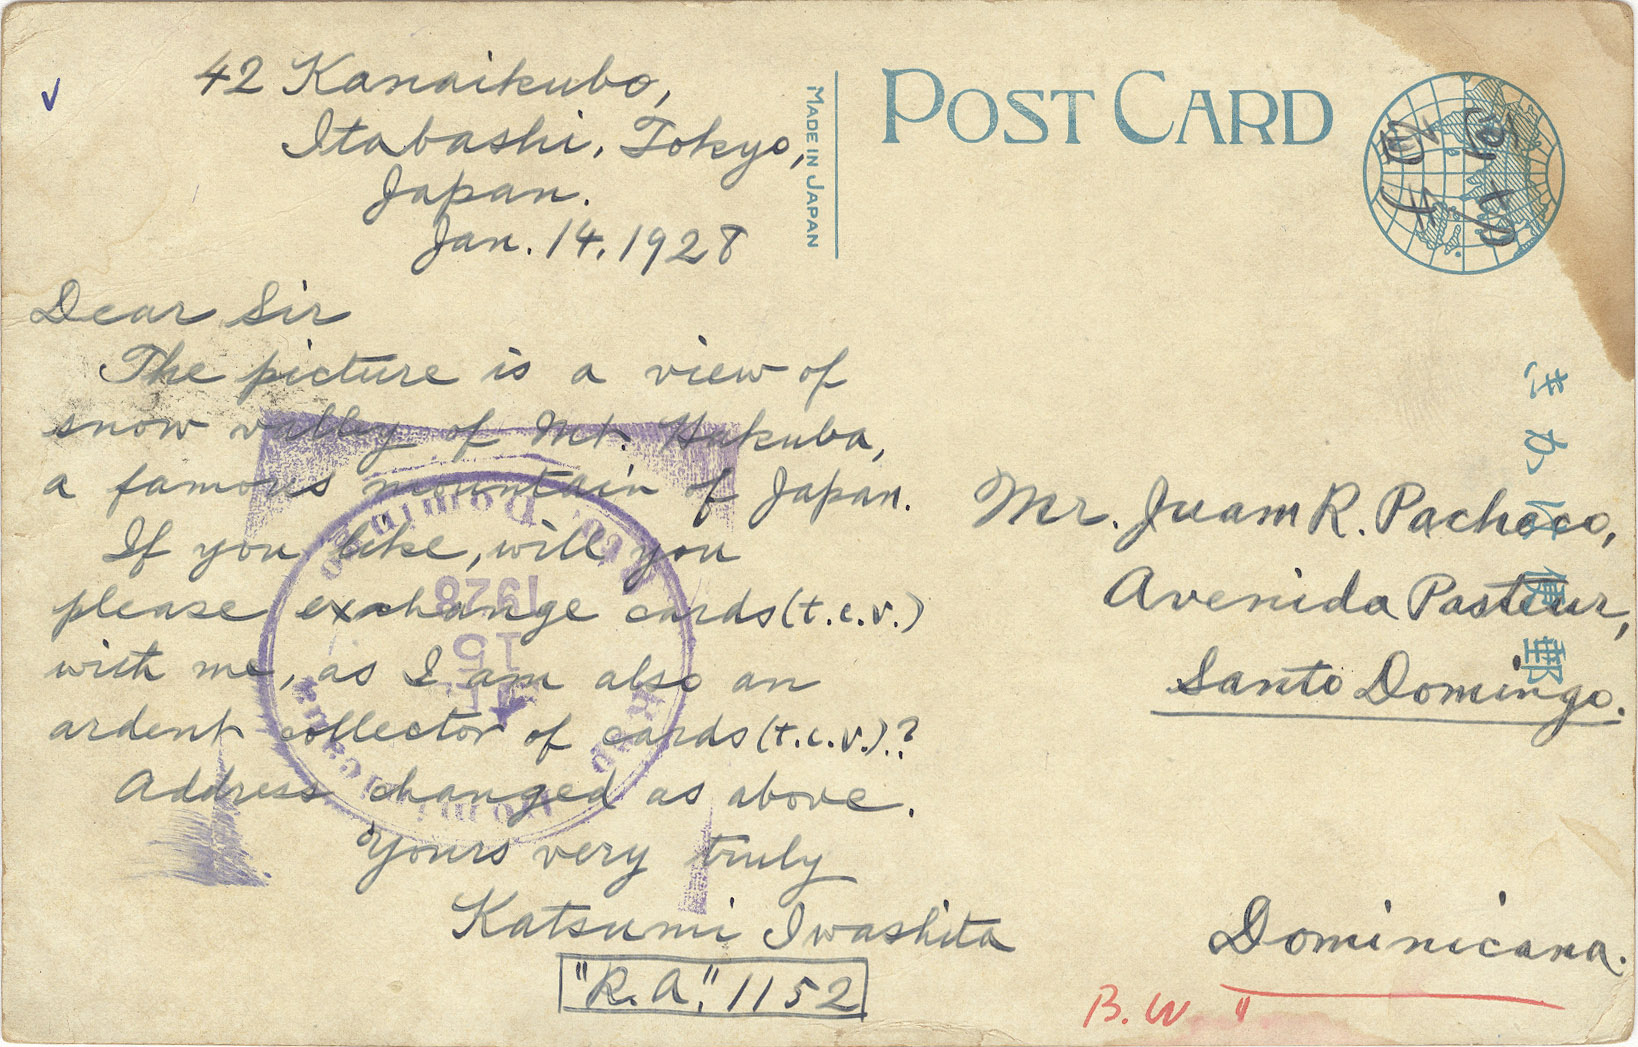 42 Kanaikubo,
Itabashi, Tokyo,
Japan.
Jan. 14, 1928
Dear Sir
The picture is a view of
snow valley of Mt. Hakuba,
a famous mountain of Japan.
If you like, will you
please exchange cards (t.c.v.)
with me, as I am also an
ardent collector of cards (t.c.v.)?
Address changed as above.
Yours very truly
Katsumi Iwashita
"R.A." 1152
MADE IN JAPAN
POST CARD
郵便はかき
Mr. Juam R. Pacheco,
Avenida Pasteur,
Santo Domingo.
Dominicana.
B. W. "
Sto. Domingo
1928
15
Rep. Dominicana